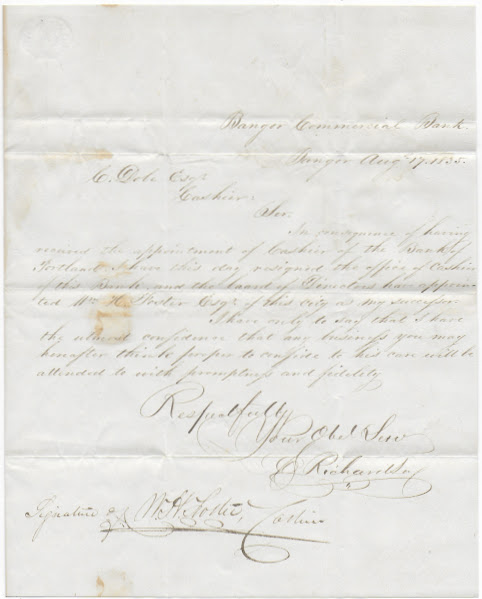 Bangor Commercial Bank.
Bangor Augt 17. 1835.
C. Dole Esqr
Cashier.
Sir.
In consequence of having
received the appointment of Cashier of the Bank of
Portland I have this day resigned the office of Cashier
of this Bank, and the board of Directors have appoin-
ted Wm H. Foster Esqr of this city as my successor
I have only to say that I have
the utmost confidence that any business you may
hereafter think proper to confide to his care will be
attended to with promptness and fidelity
Respectfully
Your Obet Serv
Richardson
Signature of W. H. Foster, Cashier